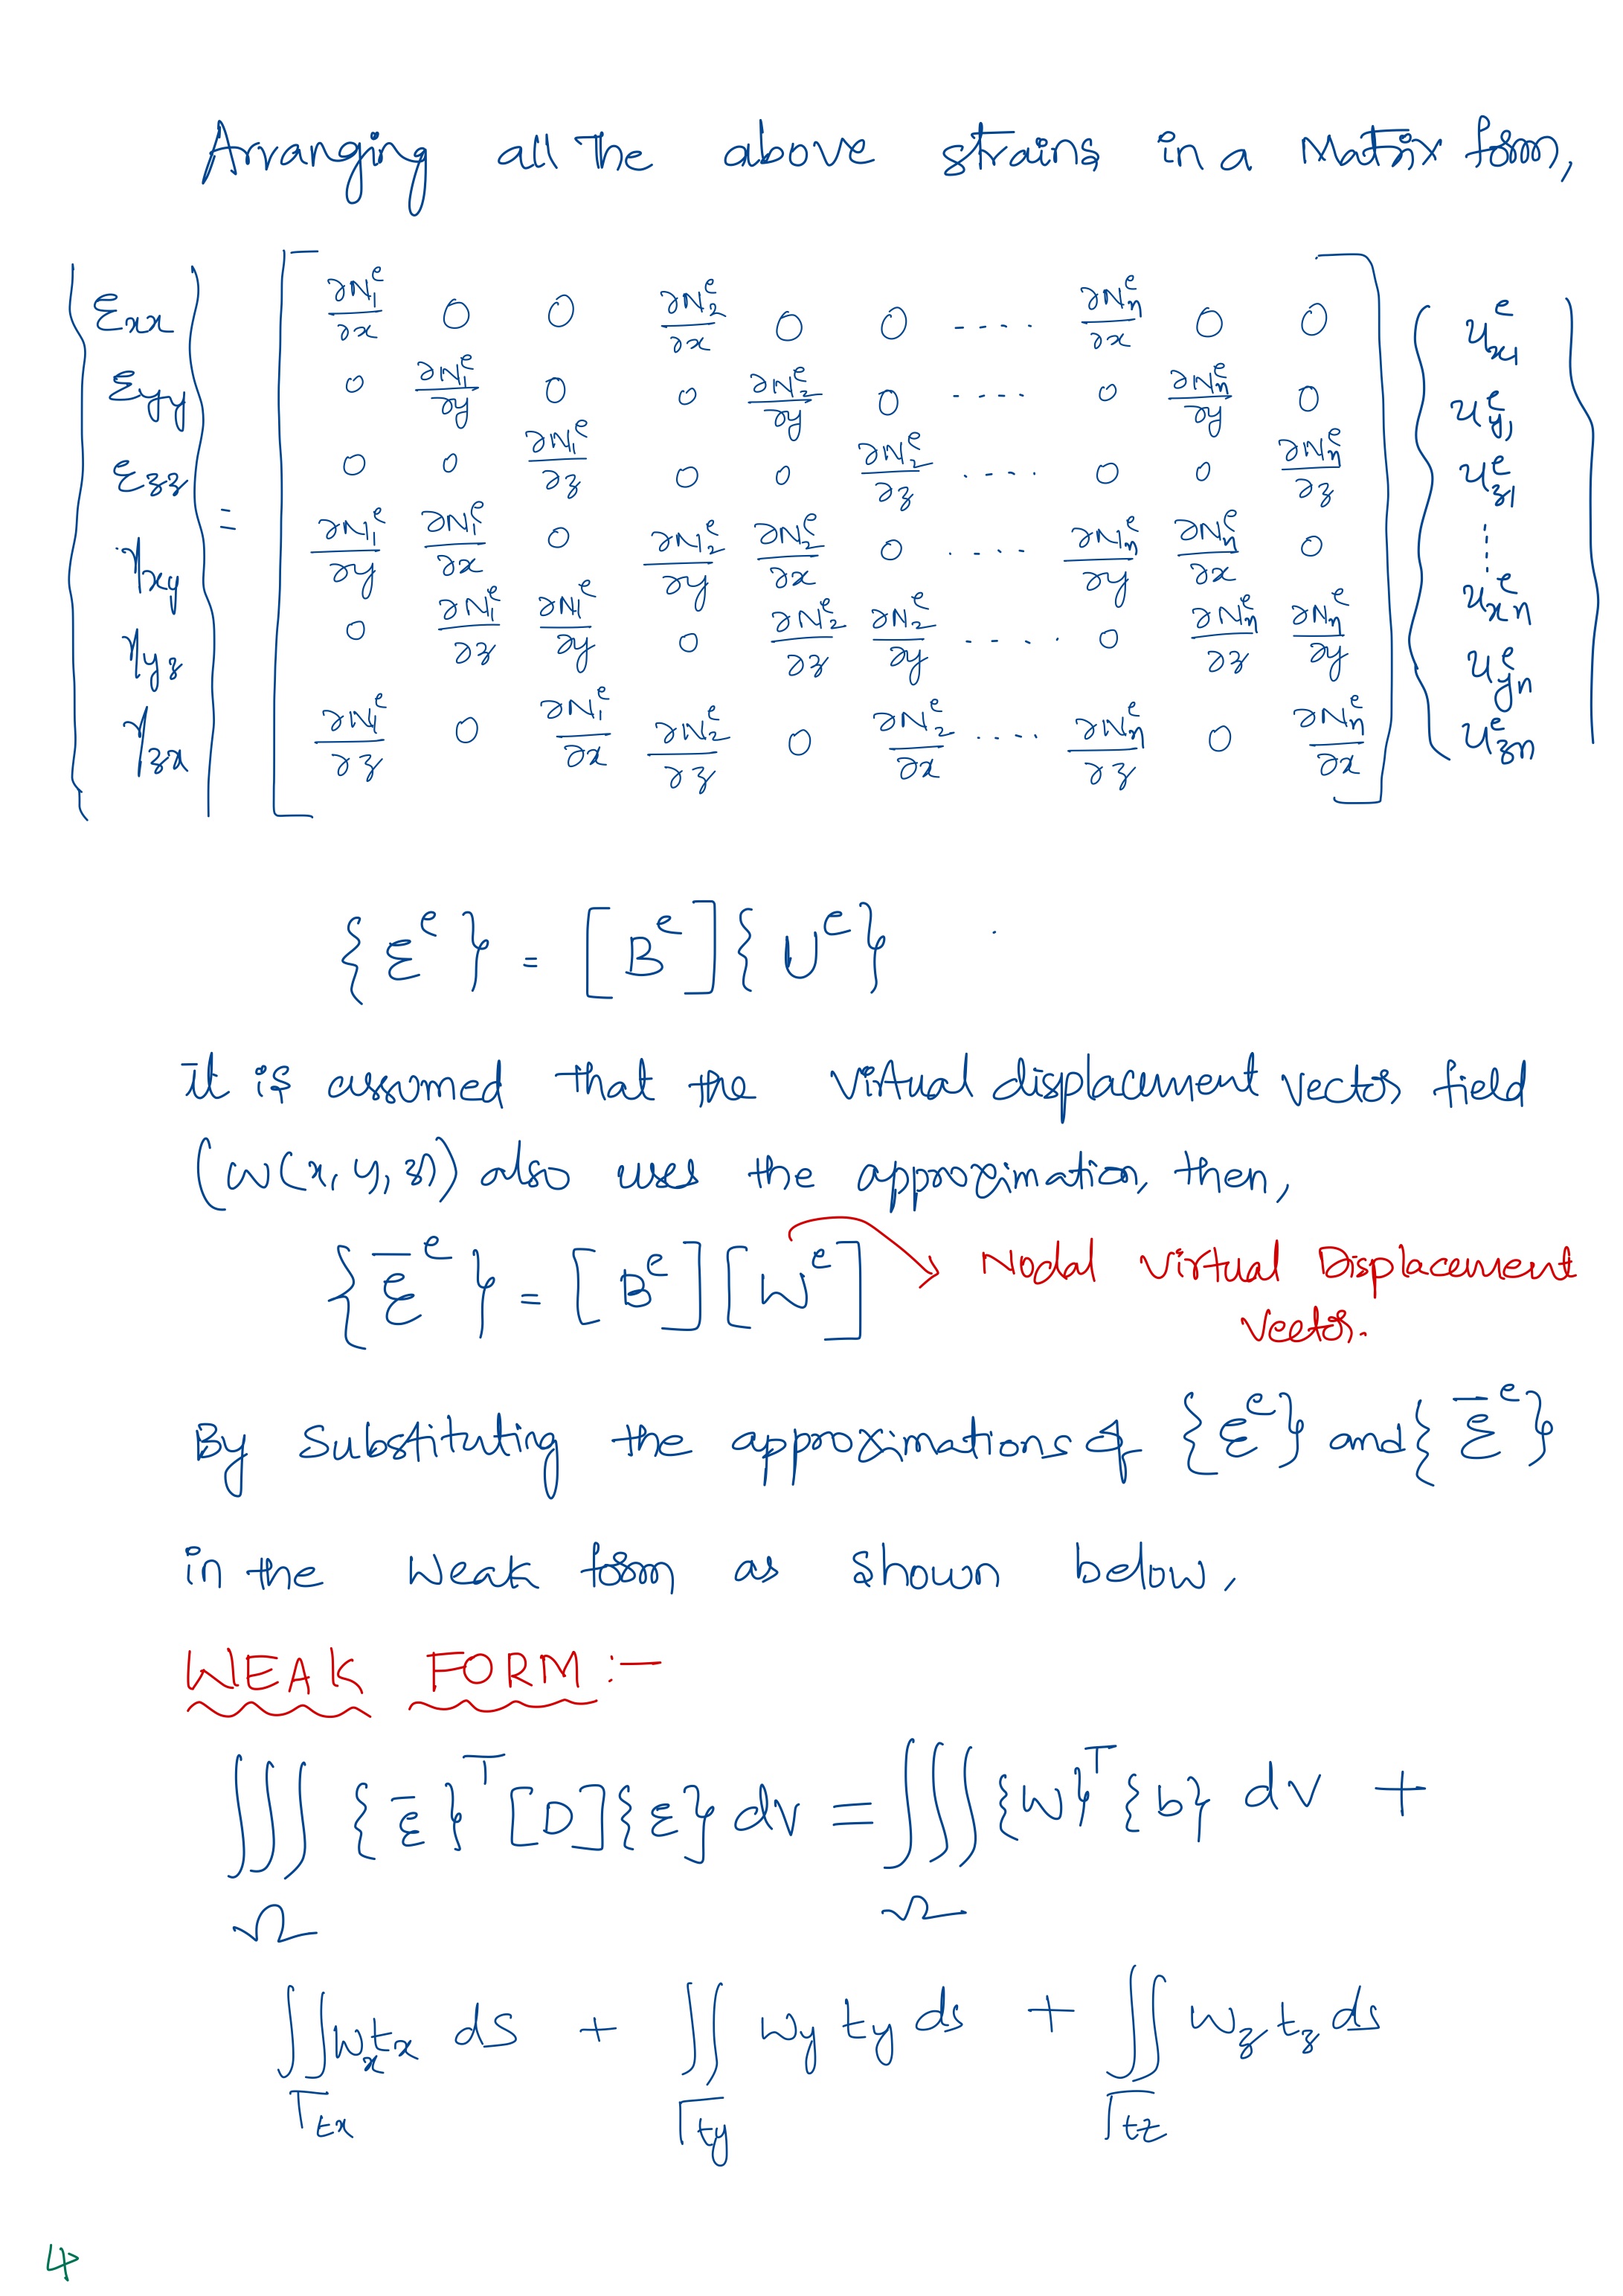 Arranging all the above strains in a Matrix form,
{εxx εyy εzz γxy γyz γzx} =
[∂N₁ᵉ/∂x 0 0 ∂N₂ᵉ/∂x 0 0 .... ∂Nₙᵉ/∂x 0 0] {uᵉx1
0 ∂N₁ᵉ/∂y 0 0 ∂N₂ᵉ/∂y 0 .... 0 ∂Nₙᵉ/∂y 0 uᵉy1
0 0 ∂N₁ᵉ/∂z 0 0 ∂N₂ᵉ/∂z .... 0 0 ∂Nₙᵉ/∂z uᵉz1
∂N₁ᵉ/∂y ∂N₁ᵉ/∂x 0 ∂N₂ᵉ/∂y ∂N₂ᵉ/∂x 0 .... ∂Nₙᵉ/∂y ∂Nₙᵉ/∂x 0 ⋮ uᵉxn
0 ∂N₁ᵉ/∂z ∂N₁ᵉ/∂y 0 ∂N₂ᵉ/∂z ∂N₂ᵉ/∂y .... 0 ∂Nₙᵉ/∂z ∂Nₙᵉ/∂y uᵉyn
∂N₁ᵉ/∂z 0 ∂N₁ᵉ/∂x ∂N₂ᵉ/∂z 0 ∂N₂ᵉ/∂x .... ∂Nₙᵉ/∂z 0 ∂Nₙᵉ/∂x] uᵉzn}
{εᵉ} = [Bᵉ]{Uᵉ}
it is assumed that the virtual displacement vector field
(w(x, y, z)) also uses the approximation, then,
{ε̄ᵉ} = [Bᵉ][Wᵉ] → Nodal Virtual Displacement
Vector.
By Substituting the approximations of {εᵉ} and {ε̄ᵉ}
in the weak form as shown below,
WEAK FORM:-
∭Ω {ε̄}ᵀ [D]{ε} dv = ∭Ω {w}ᵀ {b} dv +
∬Γtx wx tx ds + ∬Γty wy ty ds + ∬Γtz wz tz ds
4